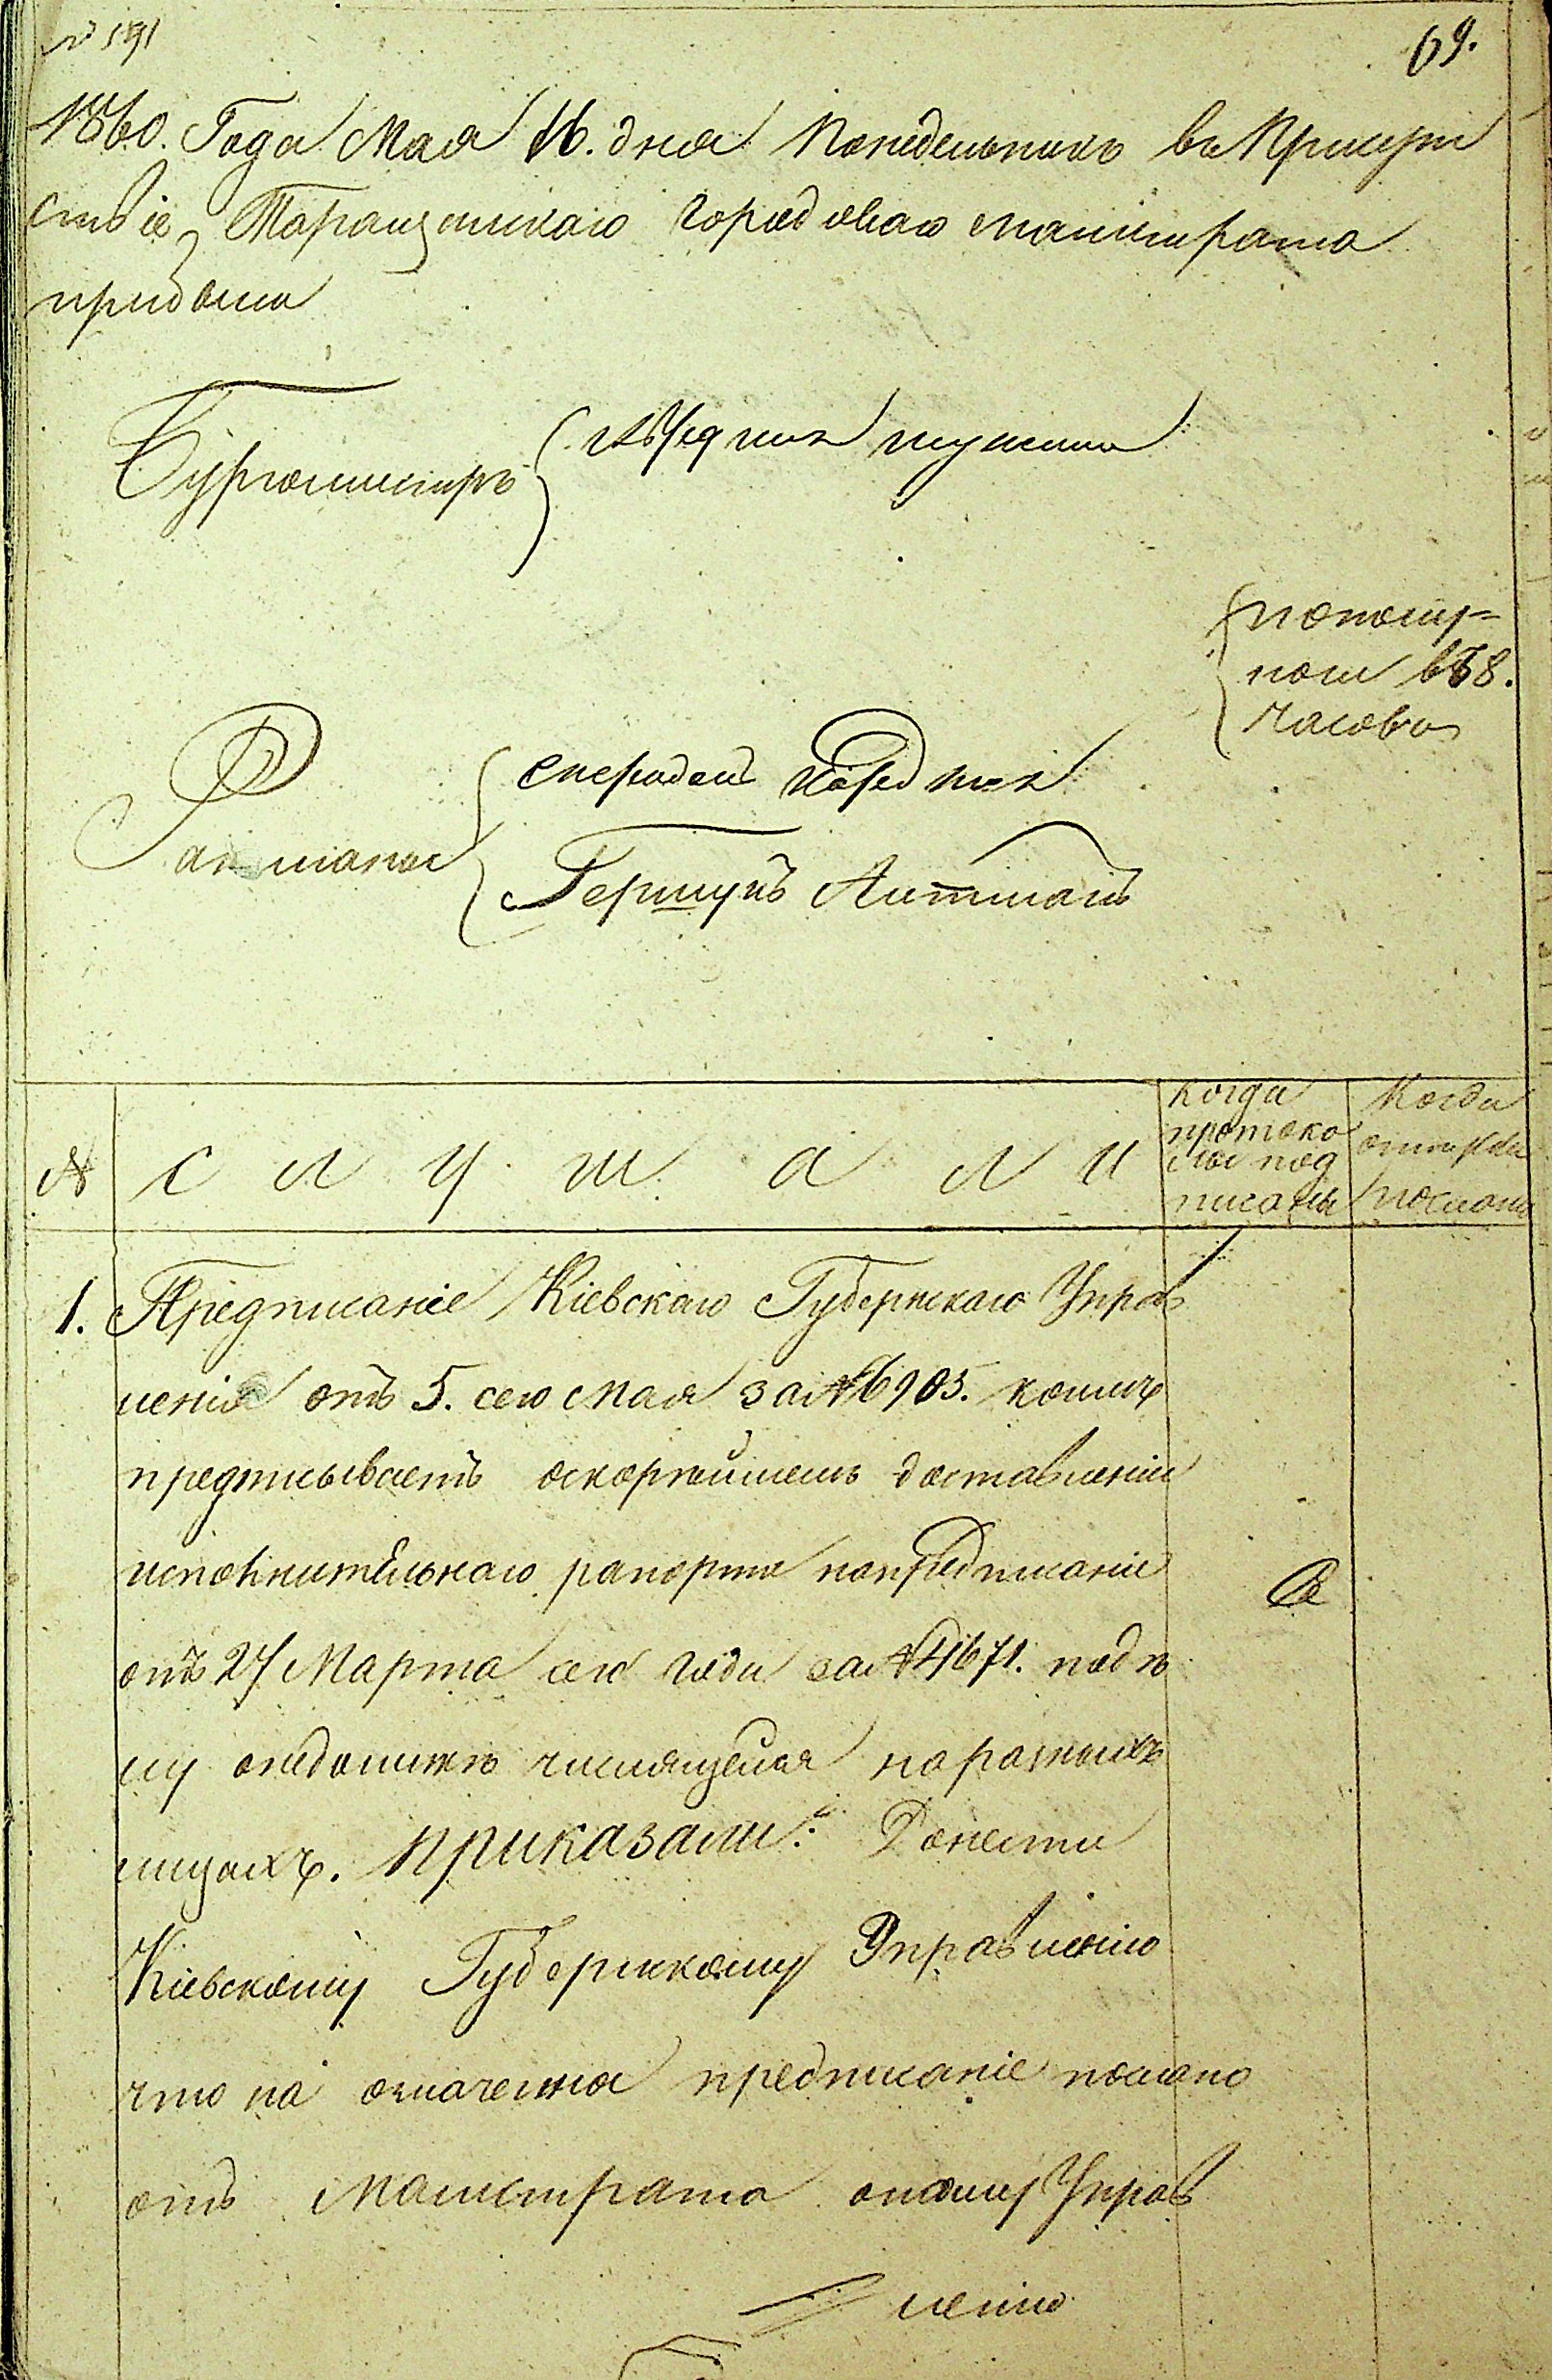 № 191
69.
1860. Года Мая 16. дня Понедельникъ въ Присут
ствіе Таращанскаго городоваго магистрата
прибыли
Бургомистръ
{ пополу-
ночи въ 8.
часовъ
Ратманы
Спиридонъ
Гершунъ Литманъ
№ с л у ш а л и
когда
протоко
лы под
писаны
Когда
отправ
посланы
1. Предписаніе Кіевскаго Губернскаго Управ
ленія отъ 5. сего Мая за № 6905. коимъ
предписываетъ оскорѣйшемъ доставленіи
исполнительнаго рапорта попредписанію
отъ 27 Марта сего года за № 4671. подѣ
лу онедоимкѣ числящейся поразныхъ
лицахъ. Приказали: Донести
Кіевскому Губернскому Управленію
что на означенное предписаніе послано
отъ Магистрата оному Управ
ленію